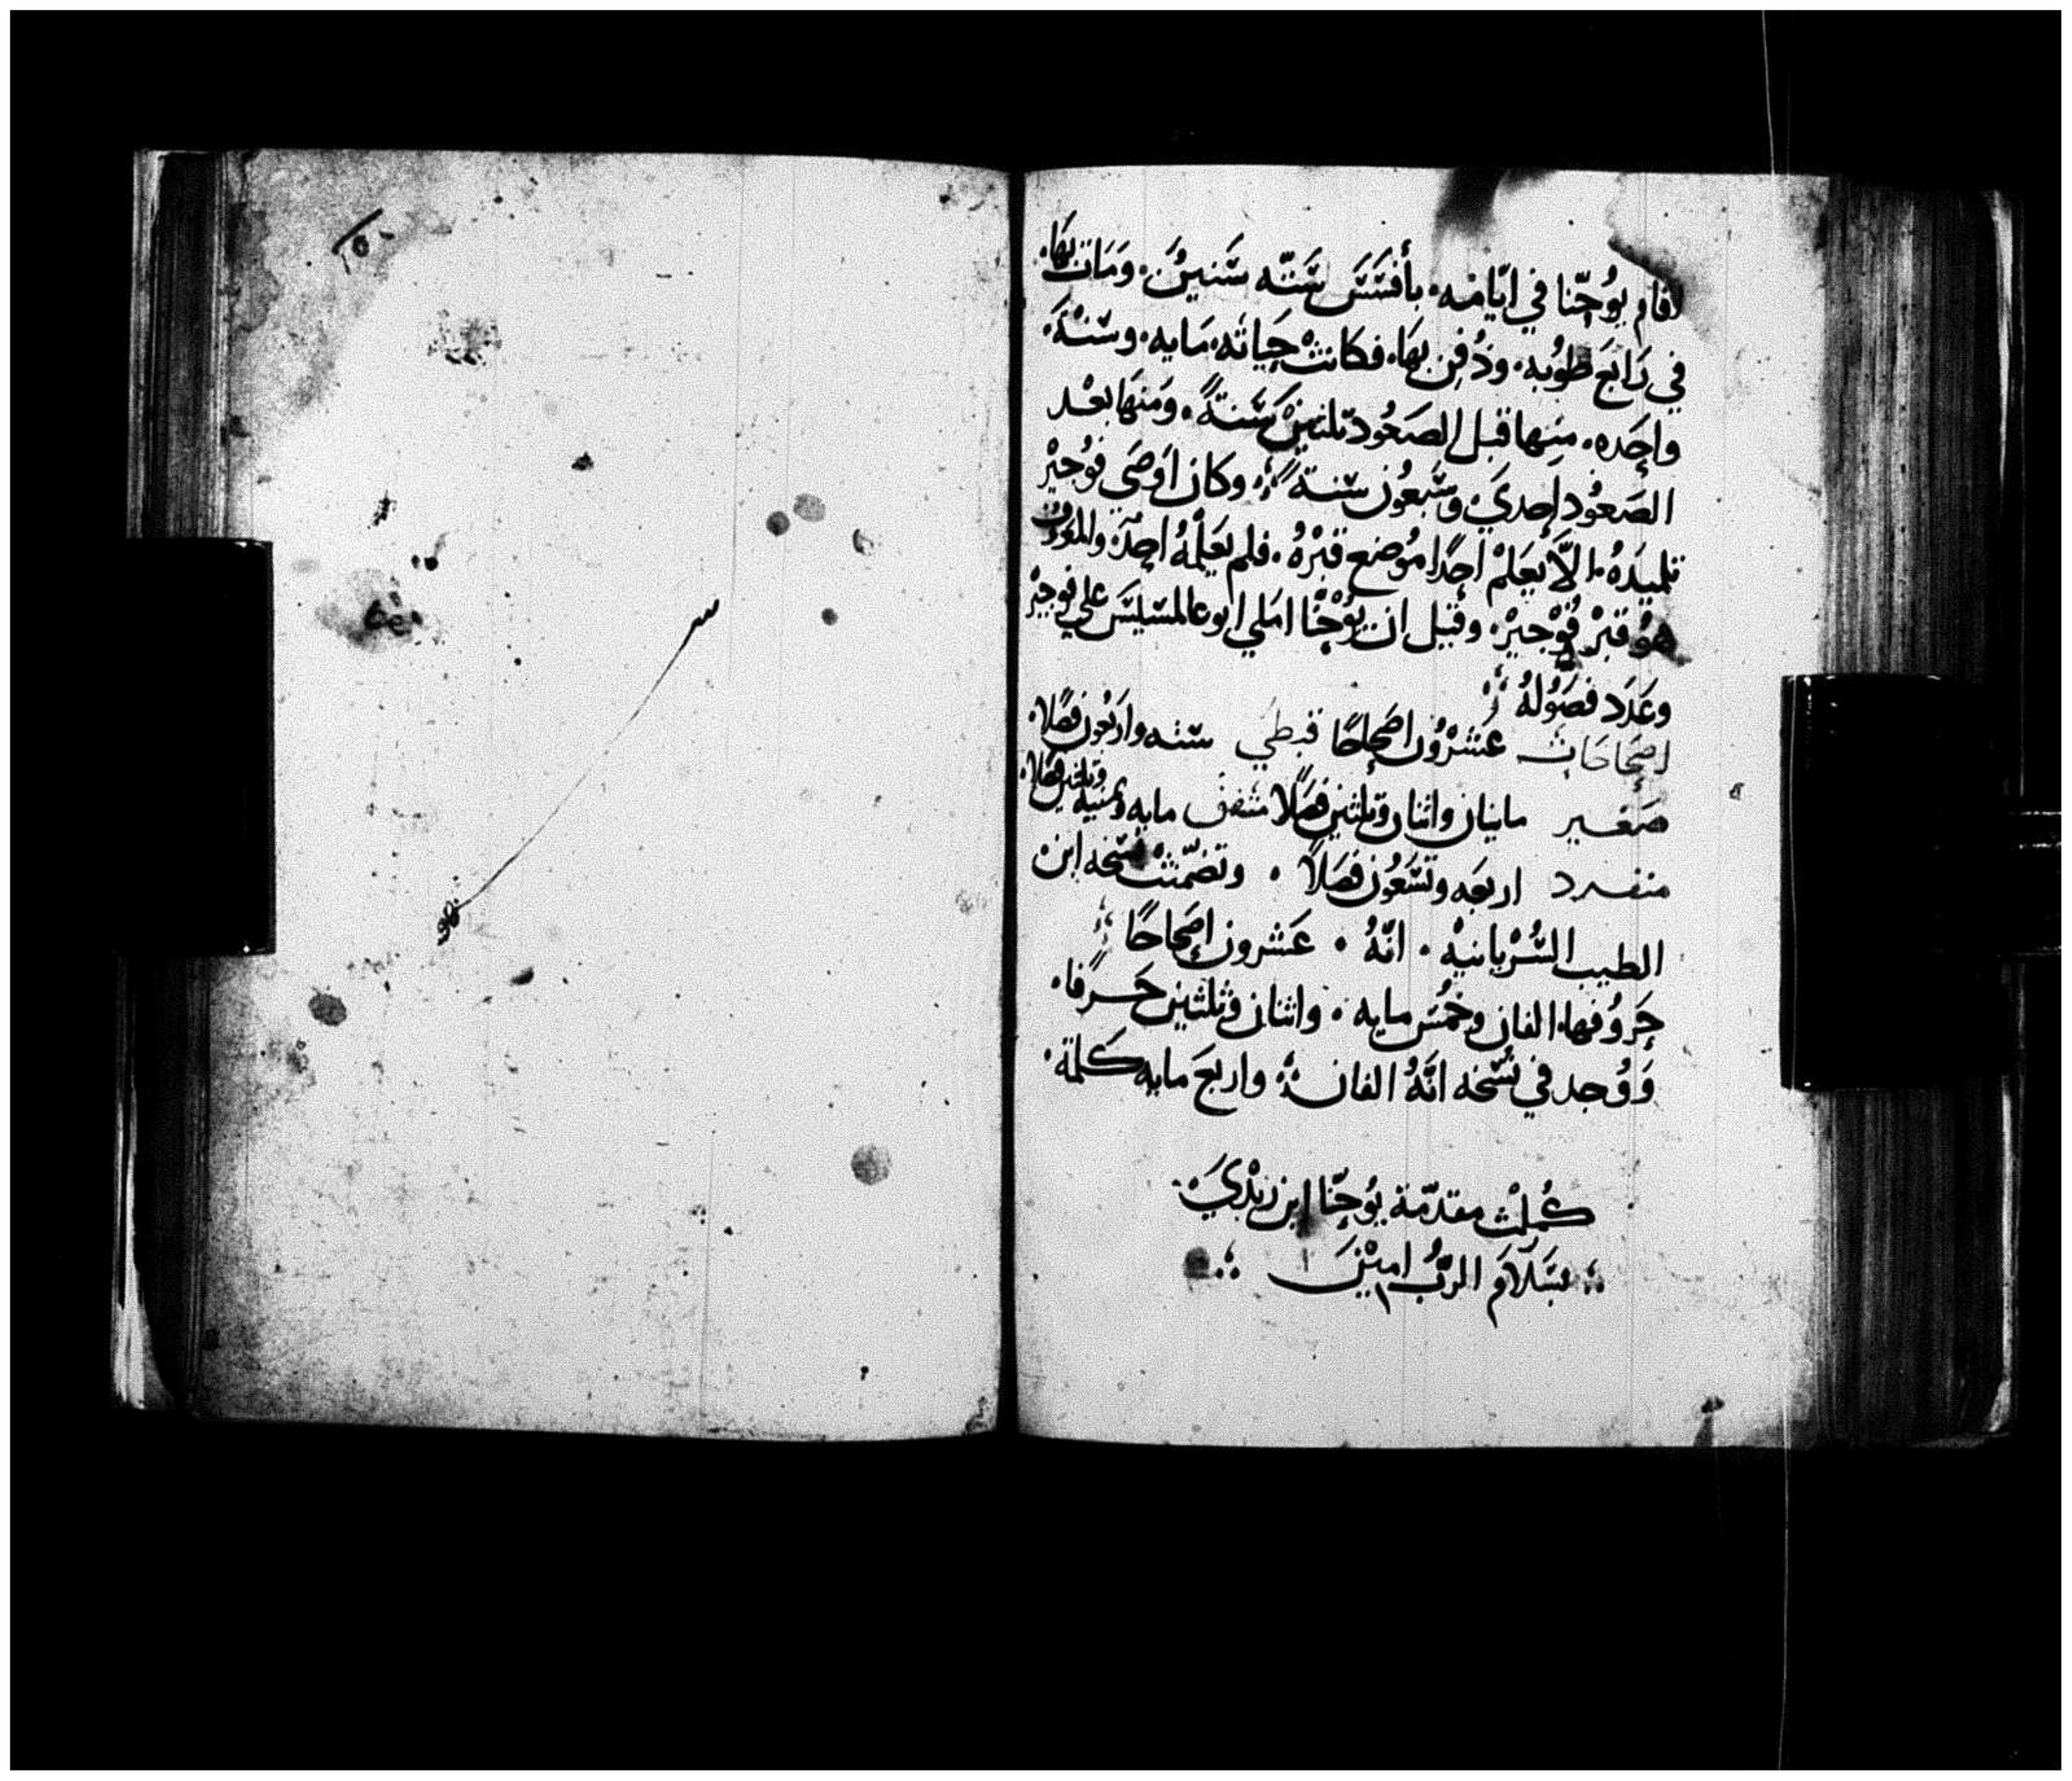 اقام يُوحّنا في ايّامه. بأفسَسَ سَتّه سَنينُ. ومَات بهَا.
في رَابعَ طوُبه. ودُفن بهَا. فكانتْ حيَاته. مايه. وسَنْةَ.
واحَده. منها قبل الصَعُود تلتينْ سَنةً. ومَنهَا بعْد
الصَعُود إحديَ وسَبعُون سَنةً وكان اوَصَي فوُجيْر
تلميذهُ. الاَّ يعَلمْ احدًا موُضع قبْرهُ. فلم يعَلمْهُ احدٌ. والمعروف
هوُ قبْر فوْجيرْ. وقيل ان يوُحْنّا املي علي فوجيرْ
وعَدَد فصَوُلهُ
اصَحَاحَات عَشرْوُن اصَحاحًا قبطي ستة واربَعُون فصَلًا.
صَغير مايتان واثنان وتلثين فصَلًا متفق مايه وثمنيه وتلثين فصَلًا.
منفرد اربعَه وتسَعُون فصَلاً. وتضمّنت نسَخه ابن
الطيب السُرْيانيْه. انّهُ. عَشرون إصَحاحًا
حَروُفها. الفان وخمُسَ مايه. واثنان وثلثين حَرفًا.
وَوُجد في نسُخه انّهُ الفان واربعَ مايه كلمة.
كُملتْ مقدّمة يوُحنّا ابن زبْديَ.
بسَلاَمَ الربُّ امينَ
١٥٠